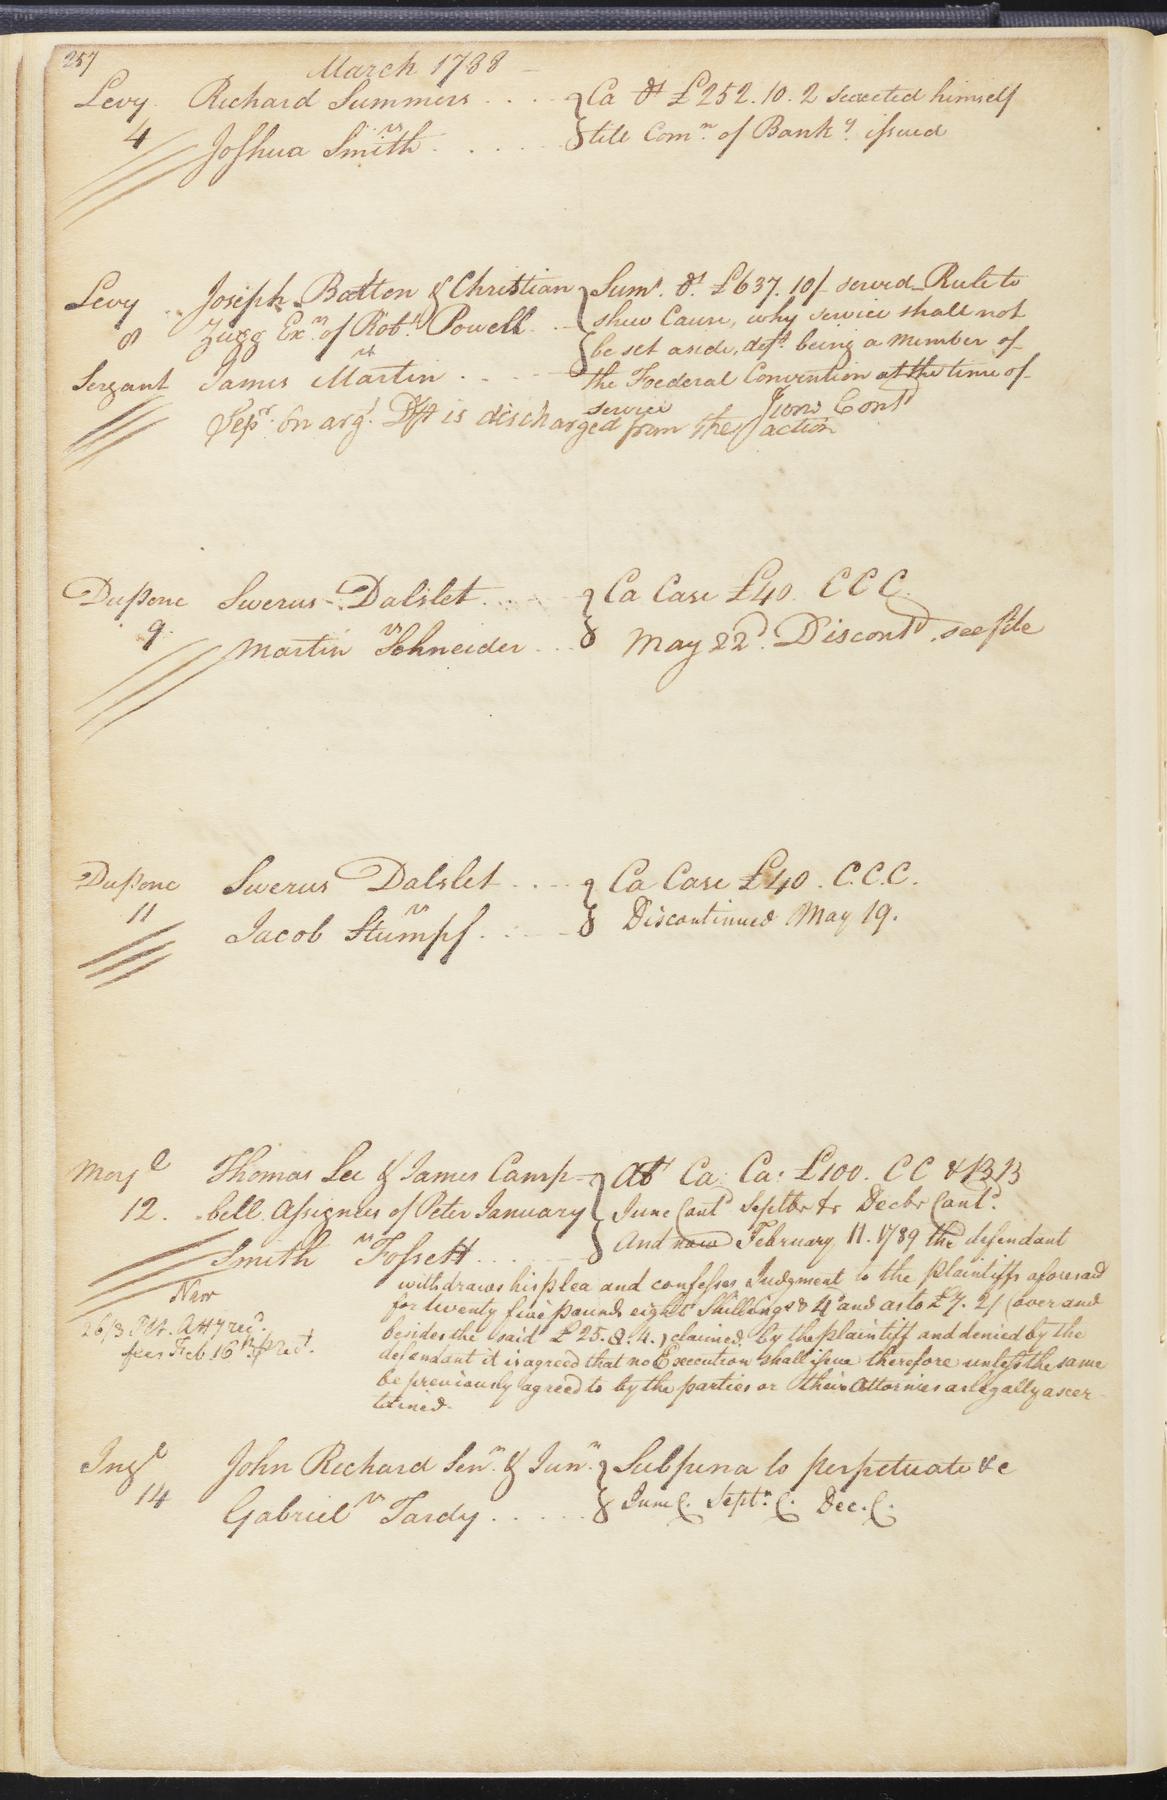 257
March 1788
Levy Richard Summers .... } Ca Dt £252.10.2 secreted himself
4 vs
Joshua Smith ..... till Comn. of Banky. issued
Levy Joseph Batten & Christian } Sums. Dt. £637.10/- served Rule to
8 Zugg Exrs. of Robt. Powell .. shew Cause, why service shall not
vs be set aside, deft. being a Member of
Sergant James Martin .... the Foederal Convention at the time of
service June Contd
Sepr. On argt. Deft is discharged from the action
Duponc Swerus Dalslet .... } Ca Case £40. CCC.
9. vs
Martin Schneider ... May 22d. Discontd. see file
Duponc Swerus Dalslet .... } Ca Case £40. C.C.C.
11 vs Discontinued May 19.
Jacob Stumpf .....
Moyl Thomas Lee & James Camp- } Ca: Ca: £100. CC & BB
12. bell Assignees of Peter January June Contd Septbr &r Decbr Contd.
Smith vs Fossett .... And now February 11. 1789 the defendant
withdraws his plea and confesses Judgment to the plaintiffs aforesaid
Narr for twenty five pounds eight Shillings & 4d and as to £7. 2/ (over and
26/3 Plt. Atty recd. besides the said £25.8.4.) claimed by the plaintiff and denied by the
fees Feb 16th. defendant it is agreed that no Execution shall issue therefore unless the same
be previously agreed to by the parties or their Attornies as legally ascer-
tained.
Ingl John Richard Senr. & Junr. } Subpena to perpetuate &c
14 vs June C. Septr. C. Dec. C.
Gabriel Tardy .....